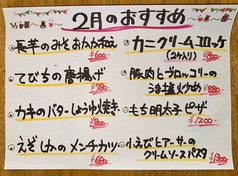 2月のおすすめ
長芋のみそおかか和え
¥600-
てびちの唐揚げ
¥780-
カキのバターしょうゆ焼き
¥800-
えぞしかのメンチカツ
¥680-
カニクリームコロッケ
(2ヶ入り) ¥800-
豚肉とブロッコリーの
うま塩炒め ¥880-
もち明太子ピザ
¥1200-
小えびとアーサーの
クリームソースパスタ ¥1300-